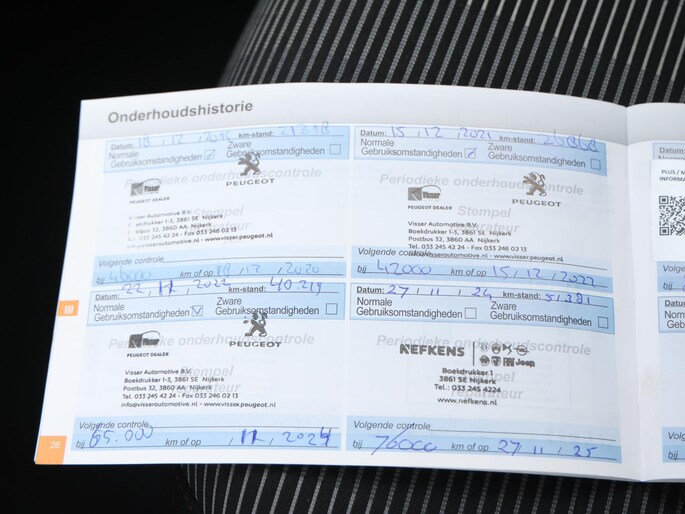 Onderhoudshistorie
Datum: 18, 12, km-stand: 21318
Normale Gebruiksomstandigheden
Zware Gebruiksomstandigheden
Periodieke onderhoudscontrole
Stempel reparateur
Visser
PEUGEOT DEALER
PEUGEOT
Visser Automotive B.V.
Boekdrukker 1-3, 3861 SE Nijkerk
Postbus 32, 3860 AA Nijkerk
Tel. 033 245 42 24 - Fax 033 246 02 13
info@visserautomotive.nl - www.visser.peugeot.nl
Volgende controle
bij km of op 12, 2020
Datum: 15, 12, 2021 km-stand:
Normale Gebruiksomstandigheden
Zware Gebruiksomstandigheden
Periodieke onderhoudscontrole
Stempel reparateur
Visser
PEUGEOT DEALER
PEUGEOT
Visser Automotive B.V.
Boekdrukker 1-3, 3861 SE Nijkerk
Postbus 32, 3860 AA Nijkerk
Tel. 033 245 42 24 - Fax 033 246 02 13
info@visserautomotive.nl - www.visser.peugeot.nl
Volgende controle
bij 42000 km of op 15, 12, 2022
III
Datum: 22, 11, 2022 km-stand: 40.219
Normale Gebruiksomstandigheden
Zware Gebruiksomstandigheden
Periodieke onderhoudscontrole
Stempel reparateur
Visser
PEUGEOT DEALER
PEUGEOT
Visser Automotive B.V.
Boekdrukker 1-3, 3861 SE Nijkerk
Postbus 32, 3860 AA Nijkerk
Tel. 033 245 42 24 - Fax 033 246 02 13
info@visserautomotive.nl - www.visser.peugeot.nl
Volgende controle
bij 65.000 km of op , 11, 2024
Datum: 27, 11, 24 km-stand: 51381
Normale Gebruiksomstandigheden
Zware Gebruiksomstandigheden
Periodieke onderhoudscontrole
Stempel reparateur
NEFKENS
Jeep
Boekdrukker 1
3861 SE Nijkerk
Tel.: 033 245 4224
www.nefkens.nl
Volgende controle
bij 76000 km of op 27, 11, 25
26
PLUS / M
INFORMA
Volg
bij